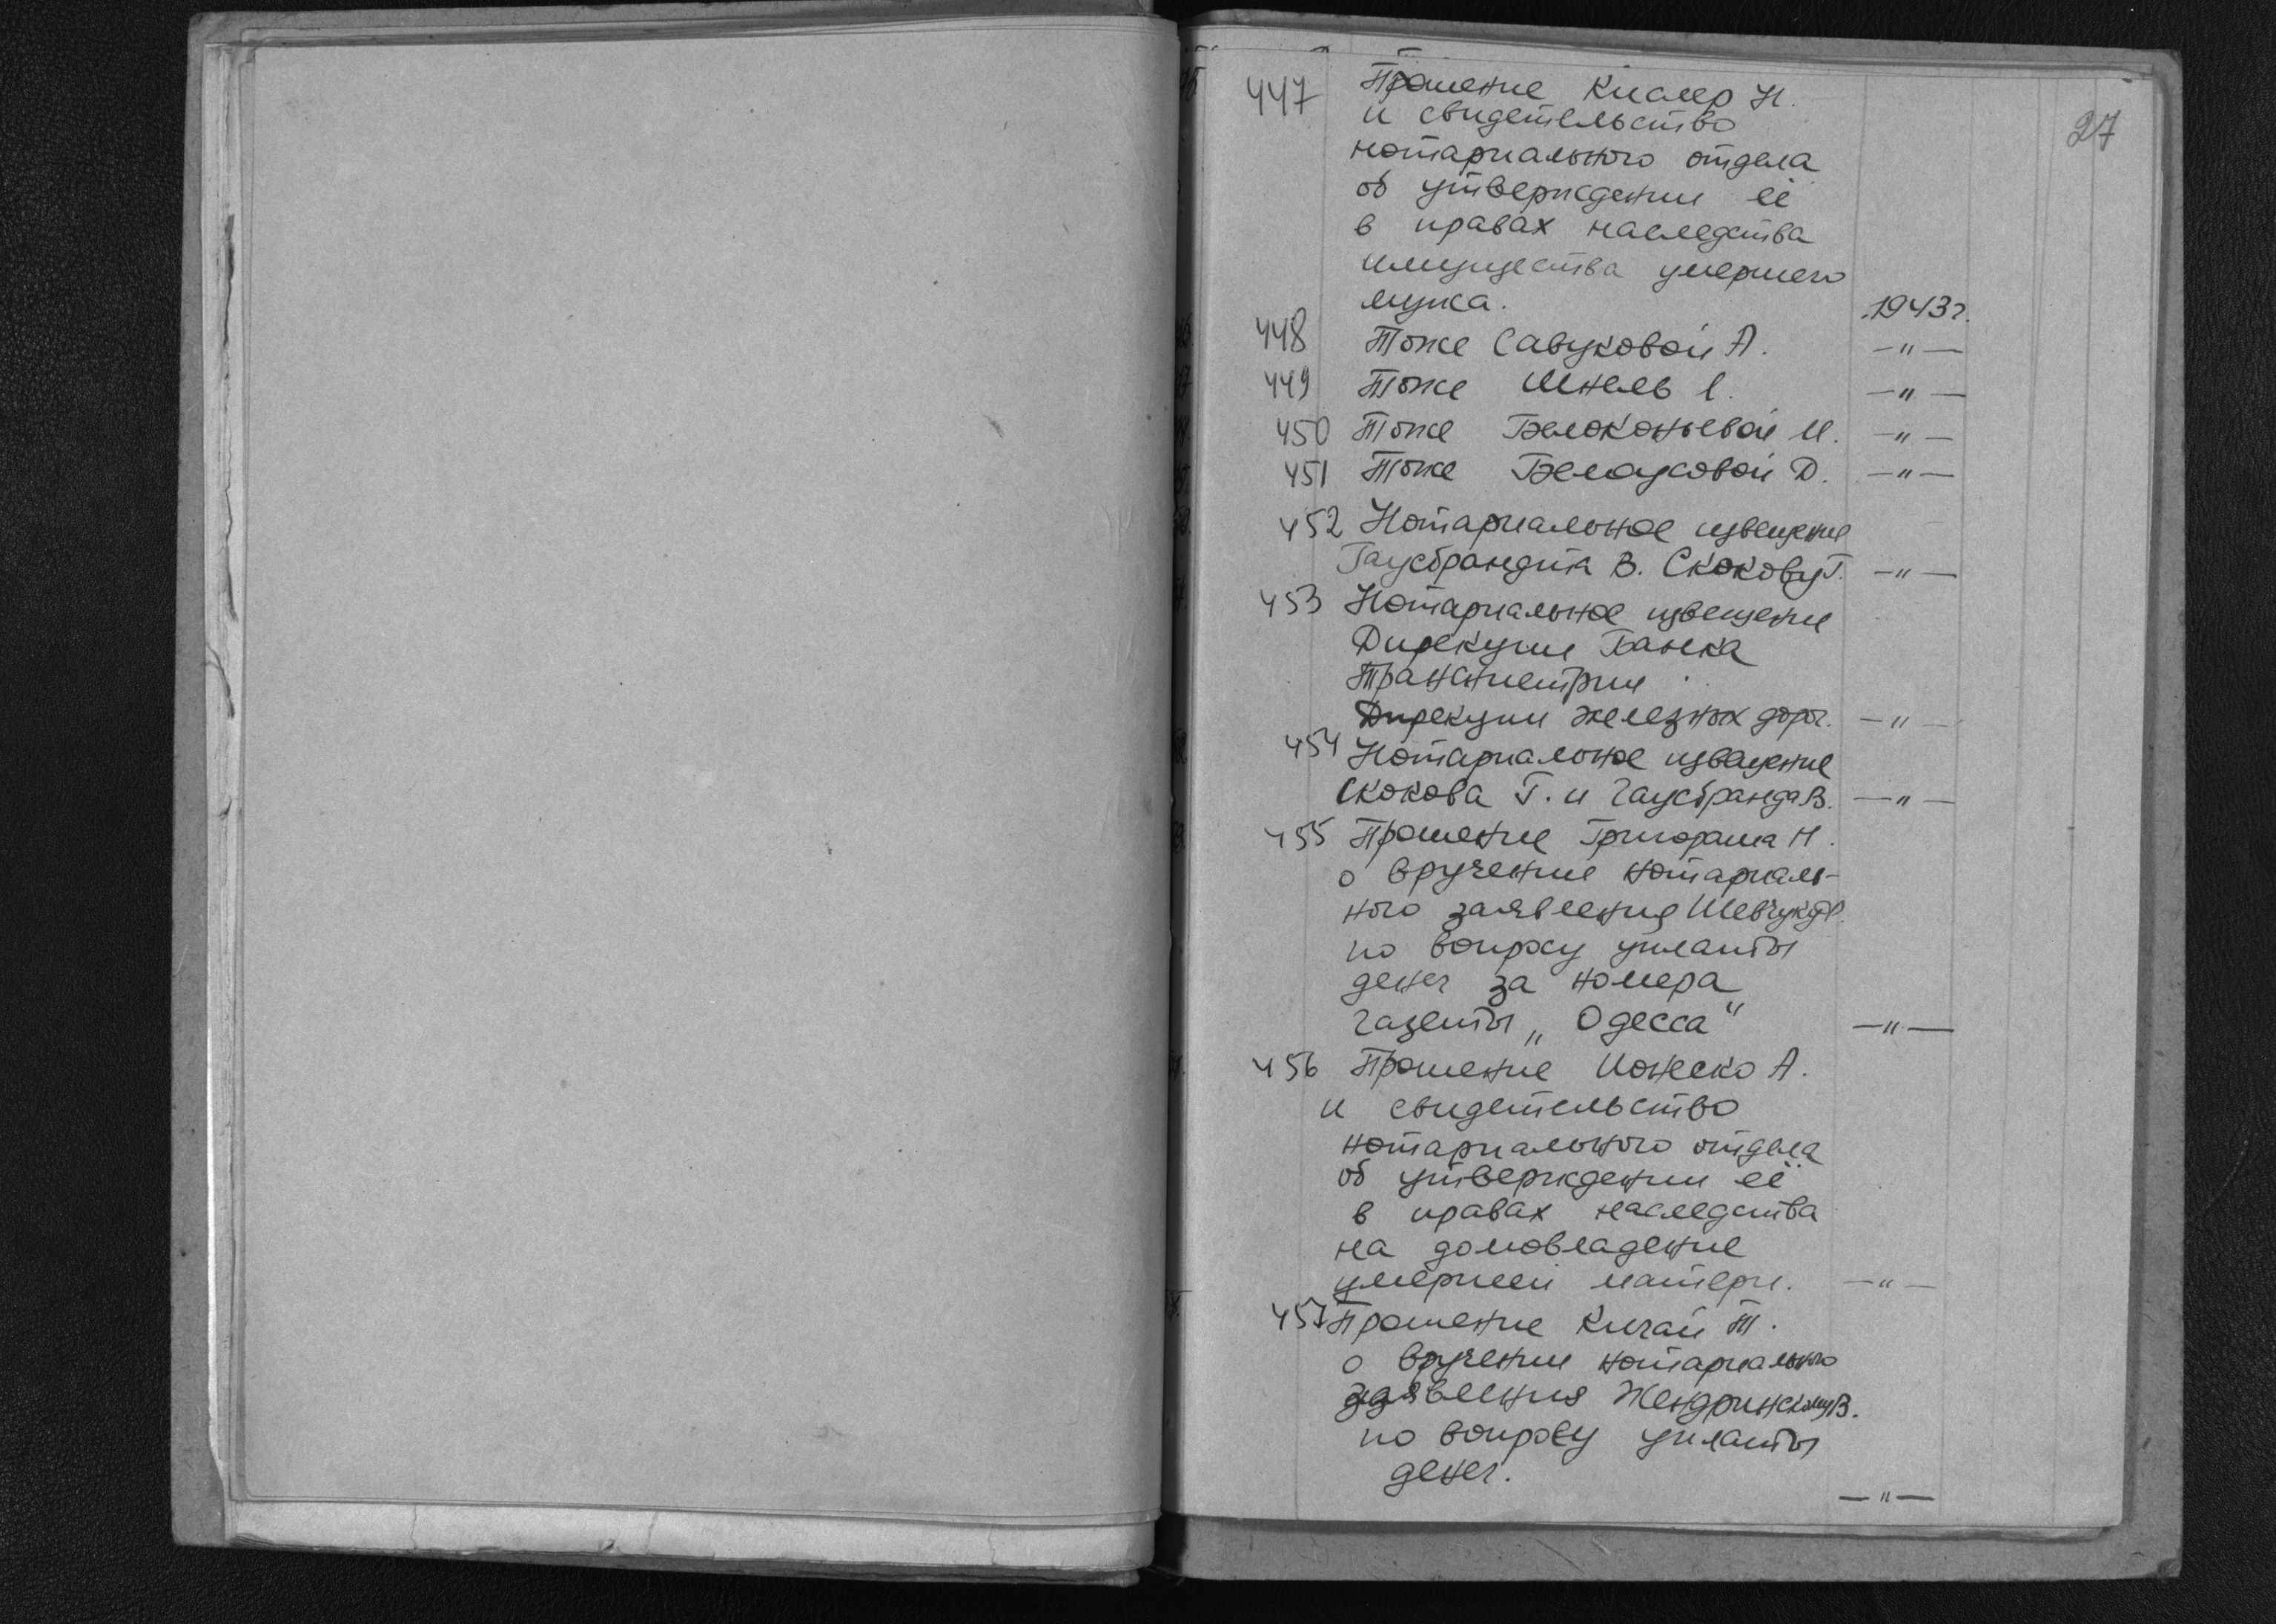 27
447 Прошение Киалер Н.
и свидетельство
нотариального отдела
об утверждении её
в правах наследства
имущества умершего
мужа. 1943г.
448 Тоже Савуковой А. —"—
449 Тоже Шнель Е. —"—
450 Тоже Белоконьевой М. —"—
451 Тоже Белоусовой Д. —"—
452 Нотариальное извещение
Гаусбрандта В. Скокову Г. —"—
453 Нотариальное извещение
Дирекции Банка
Транснистрии
Дирекции железных дорог. —"—
454 Нотариальное извещение
Скокова Г. и Гаусбранда В. —"—
455 Прошение Григораша Н.
о вручение нотариаль-
ного заявления Шевчуку
по вопросу уплаты
денег за номера
газеты „Одесса" —"—
456 Прошение Ионеско А.
и свидетельство
нотариального отдела
об утверждении её
в правах наследства
на домовладение
умершей матери. —"—
457 Прошение Кичай Т.
о вручении нотариального
заявления Жендринскому В.
по вопросу уплаты
денег. —"—